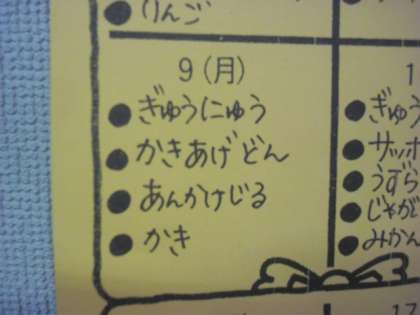 りんご
9(月)
●ぎゅうにゅう
●かきあげどん
●あんかけじる
●かき
1
●ぎゅう
●サッポ
●うずら
●じゃが
●みかん
17